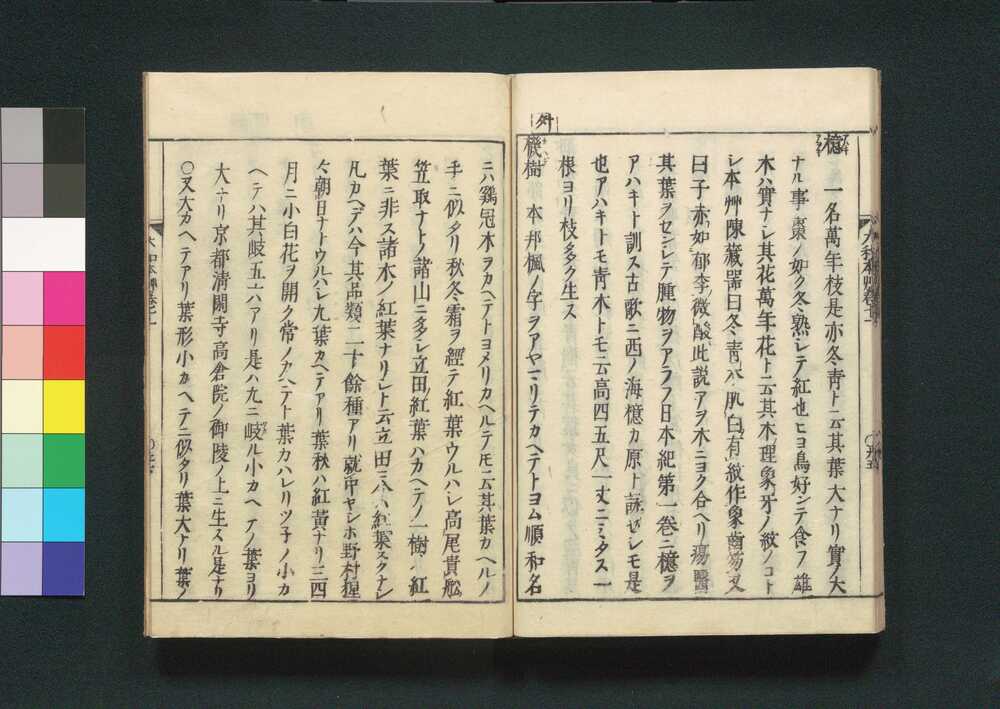 檍 一名萬年枝是亦冬青ト云其葉大ナリ實ノ大
ナル事棗ノ如ク冬熟シテ紅也ヒヨ鳥好ンテ食フ雄
木ハ實ナシ其花萬年花ト云其木ノ理象牙ノ紋ノコト
シ本艸陳藏器曰冬青木肌白有紋作象齒笏又
曰子赤如郁李微酸此説アヲ木ニヨク合ヘリ瘍醫
其葉ヲセンシテ腫物ヲアラフ日本紀第一巻ニ檍ヲ
アハキト訓ス古歌ニ西ノ海檍カ原ト詠セシモ是
也アハキトモ青木トモ云高四五尺一丈ニミタス一
根ヨリ枝多ク生ス
機樹 本邦楓ノ字ヲアヤマリテカヘテトヨム順和名
ニハ鷄冠木ヲカヘテトヨメリカヘルテノモ云其葉カヘルノ
手ニ似タリ秋冬霜ヲ經テ紅葉ウルハシ高尾貴船
笠取ナトノ諸山ニ多シ立田ノ紅葉ハカヘテノ一樹ノ紅
葉ニ非ス諸木ノ紅葉ナリト云立田ニハ紅葉スクナシ
凡カヘデハ今其品類二十餘種アリ就中ヤシホ野村猩
々朝日ナトウルハシ九葉カヘテアリ葉秋ハ紅黄ナリ三四
月ニ小白花ヲ開ク常ノカヘテト葉カハレリツ子ノ小カ
ヘテハ其岐五六アリ是ハ九ニ岐ル小カヘテノ葉ヨリ
大ナリ京都清閑寺高倉院ノ御陵ノ上ニ生スル是ナリ
○又大カヘテアリ葉形小カヘテニ似タリ葉大ナリ葉ノ